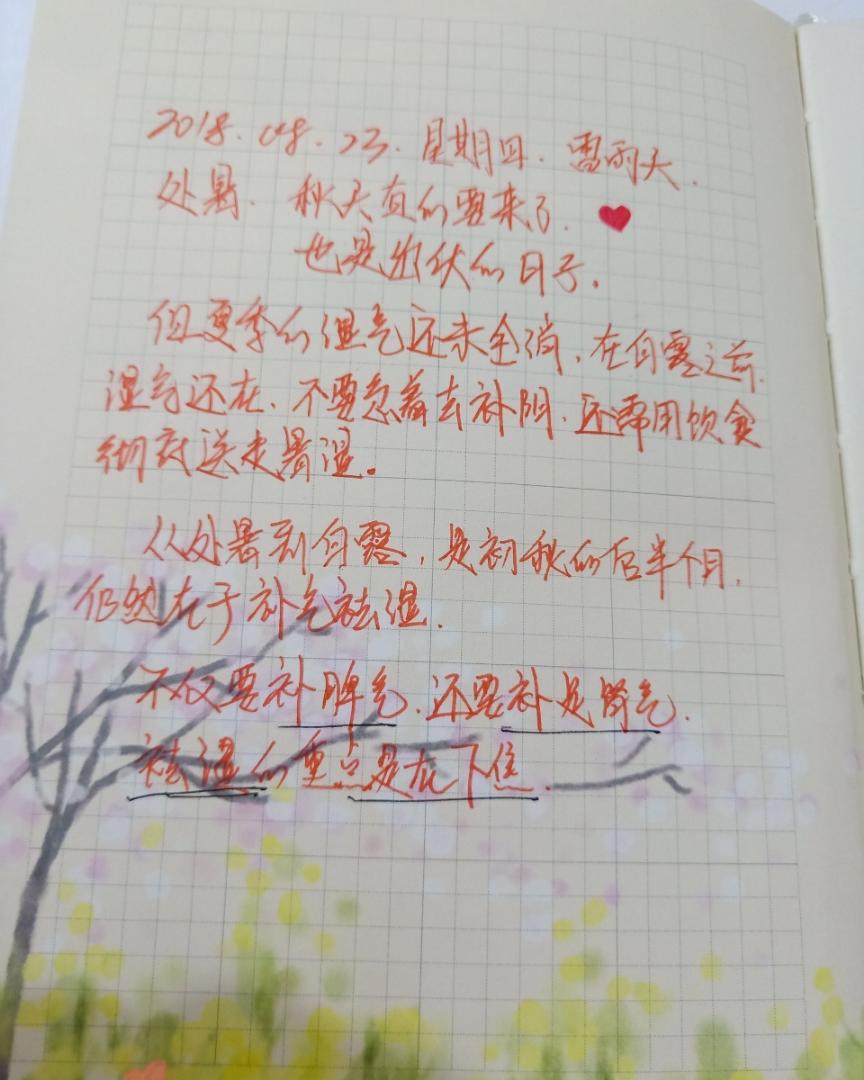 2018.08.23.星期四.雷雨天.
处暑. 秋天真的要来了.
也是出伏的日子.
但夏季的湿气还未全消,在白露之前.
湿气还在.不要急着去补阴.还需用饮食
彻底送走暑湿。
从处暑到白露,是初秋的后半个月.
仍然在于补气祛湿.
不仅要补脾气.还要补足肾气.
祛湿的重点是在下焦.